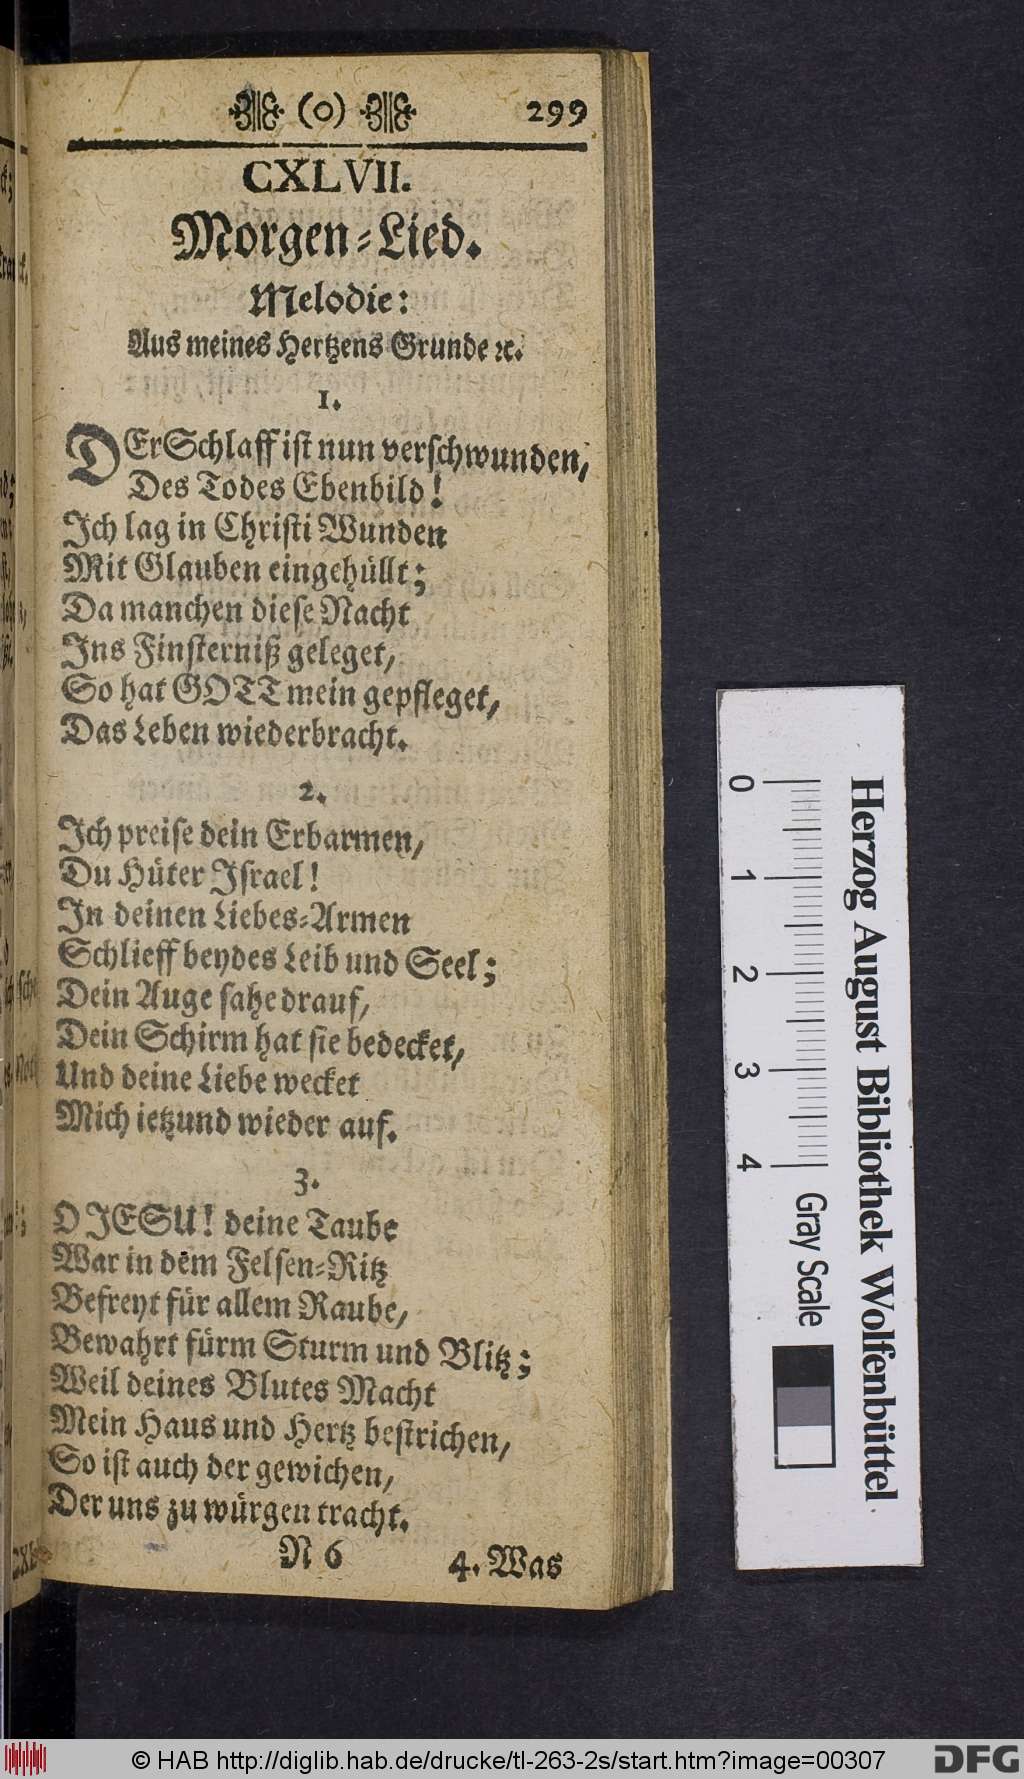 (o) 299
CXLVII.
Morgen-Lied.
Melodie:
Aus meines Hertzens Grunde ꝛc.
1.
DEr Schlaff ist nun verschwunden,
Des Todes Ebenbild!
Ich lag in Christi Wunden
Mit Glauben eingehüllt;
Da manchen diese Nacht
Ins Finsterniß geleget,
So hat GOTT mein gepfleget,
Das Leben wiederbracht.
2.
Ich preise dein Erbarmen,
Du Hüter Israel!
In deinen Liebes-Armen
Schlieff beydes Leib und Seel;
Dein Auge sahe drauf,
Dein Schirm hat sie bedecket,
Und deine Liebe wecket
Mich ietzund wieder auf.
3.
O JESU! deine Taube
War in dem Felsen-Ritz
Befreyt für allem Raube,
Bewahrt fürm Sturm und Blitz;
Weil deines Blutes Macht
Mein Haus und Hertz bestrichen,
So ist auch der gewichen,
Der uns zu würgen tracht.
N 6 4. Was
Herzog August Bibliothek Wolfenbüttel
0 1 2 3 4 Gray Scale
© HAB http://diglib.hab.de/drucke/tl-263-2s/start.htm?image=00307
DFG